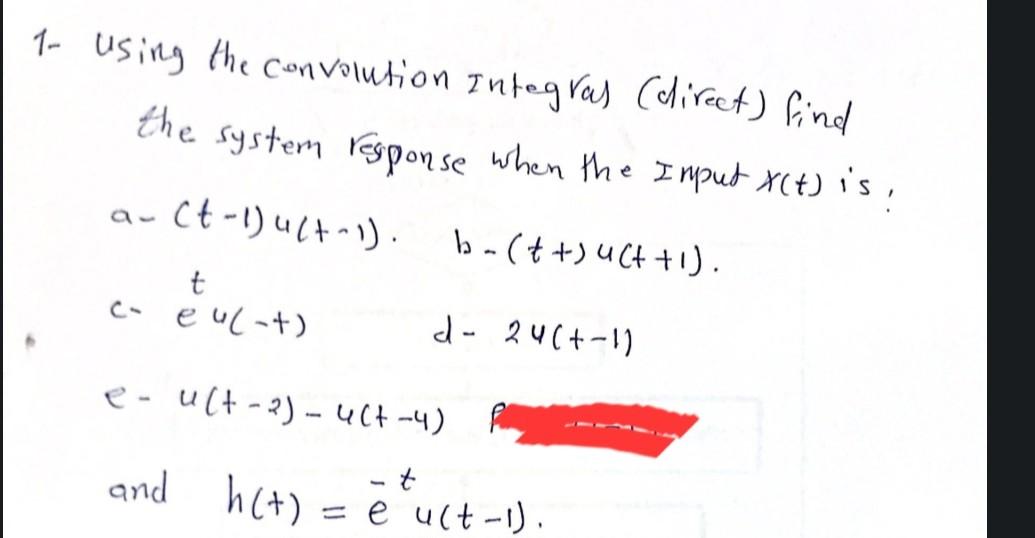 1- Using the Convolution Integral (direct) find
the system response when the Input x(t) is:
a- (t-1) u(t-1). b- (t+) u(t+1).
c- e^t u(-t) d- 2u(t-1)
e- u(t-2) - u(t-4)
and h(t) = e^-t u(t-1).